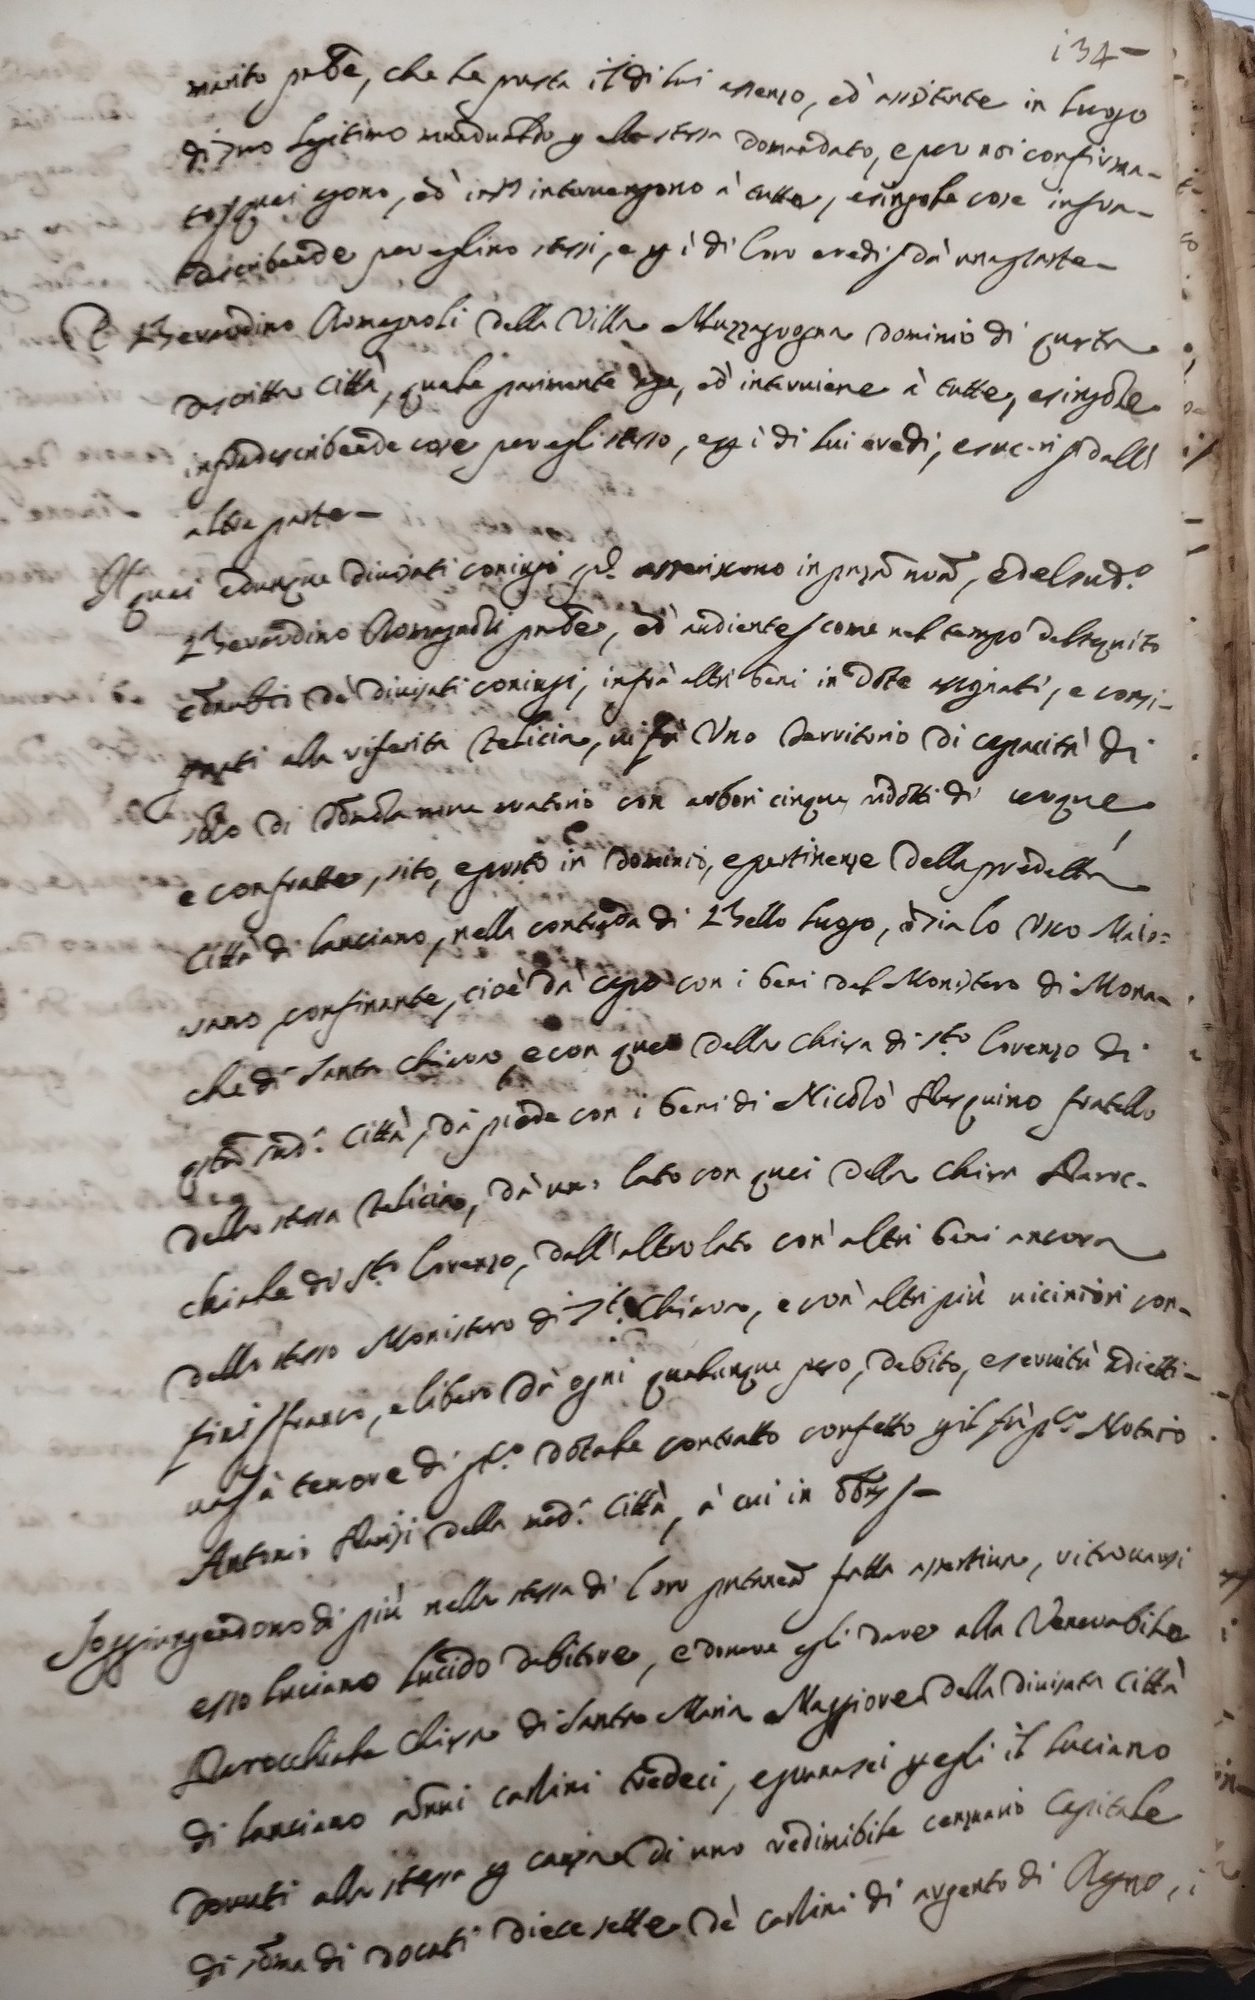 134
marito pñte, che le presta il di lui assenso, ed assistente in luogo
di suo legitimo mundualdo p ella stessa domandato, e per noi confirma-
to, quei sono, ed intervengono à tutte, e singole cose infra-
describende per eglino stessi, e p i di loro eredi dà una parte
E Berardino Romagnoli della Villa Mozzagrogna dominio di questa
descritta Città, quale parimente age, ed interviene à tutte, e singole
infradescribende cose per egli stesso, e p i di lui eredi, e suc-ri dall'
altra parte
Quei adunque divisati coniugi asseriscono in pnza nrã, e del sudº
Berardino Romagnoli pñte, ed audiente, come nel tempo del seguito
connubio dà divisati coniugi, infrà altri beni in dote assignati, e consi-
gnati alla riferita Felicia, vi fù Uno Territorio di capacità di
solo di aratorio con arbori cinque ridotti di cerque
e confratte, sito, e posto in dominio, e pertinenze della predetta
Città di Lanciano, nella contrada di Bello Luogo, ò sia lo Vico
confinante, cioè dà capo con i beni del Monistero di Mona-
che di Santa Chiara, e con quei della Chiesa di Stº Lorenzo di
qsta sudª Città, dà piede con i beni di Nicolò Pasquino fratello
della stessa Felicia, dà uno lato con quei della Chiesa Paroc-
chiale di Stº Lorenzo, dall'altro lato con altri beni ancora
dello stesso Monistero di Stª Chiara, e con altri più viciniori con-
fini, franco, e libero dà ogni qualunque peso, debito, e servitù
à tenore di dotale contratto confetto p il fù Notaro
Antonio della medª Città, à cui in
Soggiungendono di più nella stessa di loro fatta assertiva, ritrovarsi
esso Luciano Lucido debitore, e dovere egli dare alla Venerabile
Parocchiale Chiesa di Santa Maria Maggiore della divisata Città
di Lanciano annui carlini tredeci, e grana sei p egli il Luciano
dovuti alla stessa p causa di uno redimibile censuario Capitale
di soma di docati diecesette dè carlini di argento di Regno, i